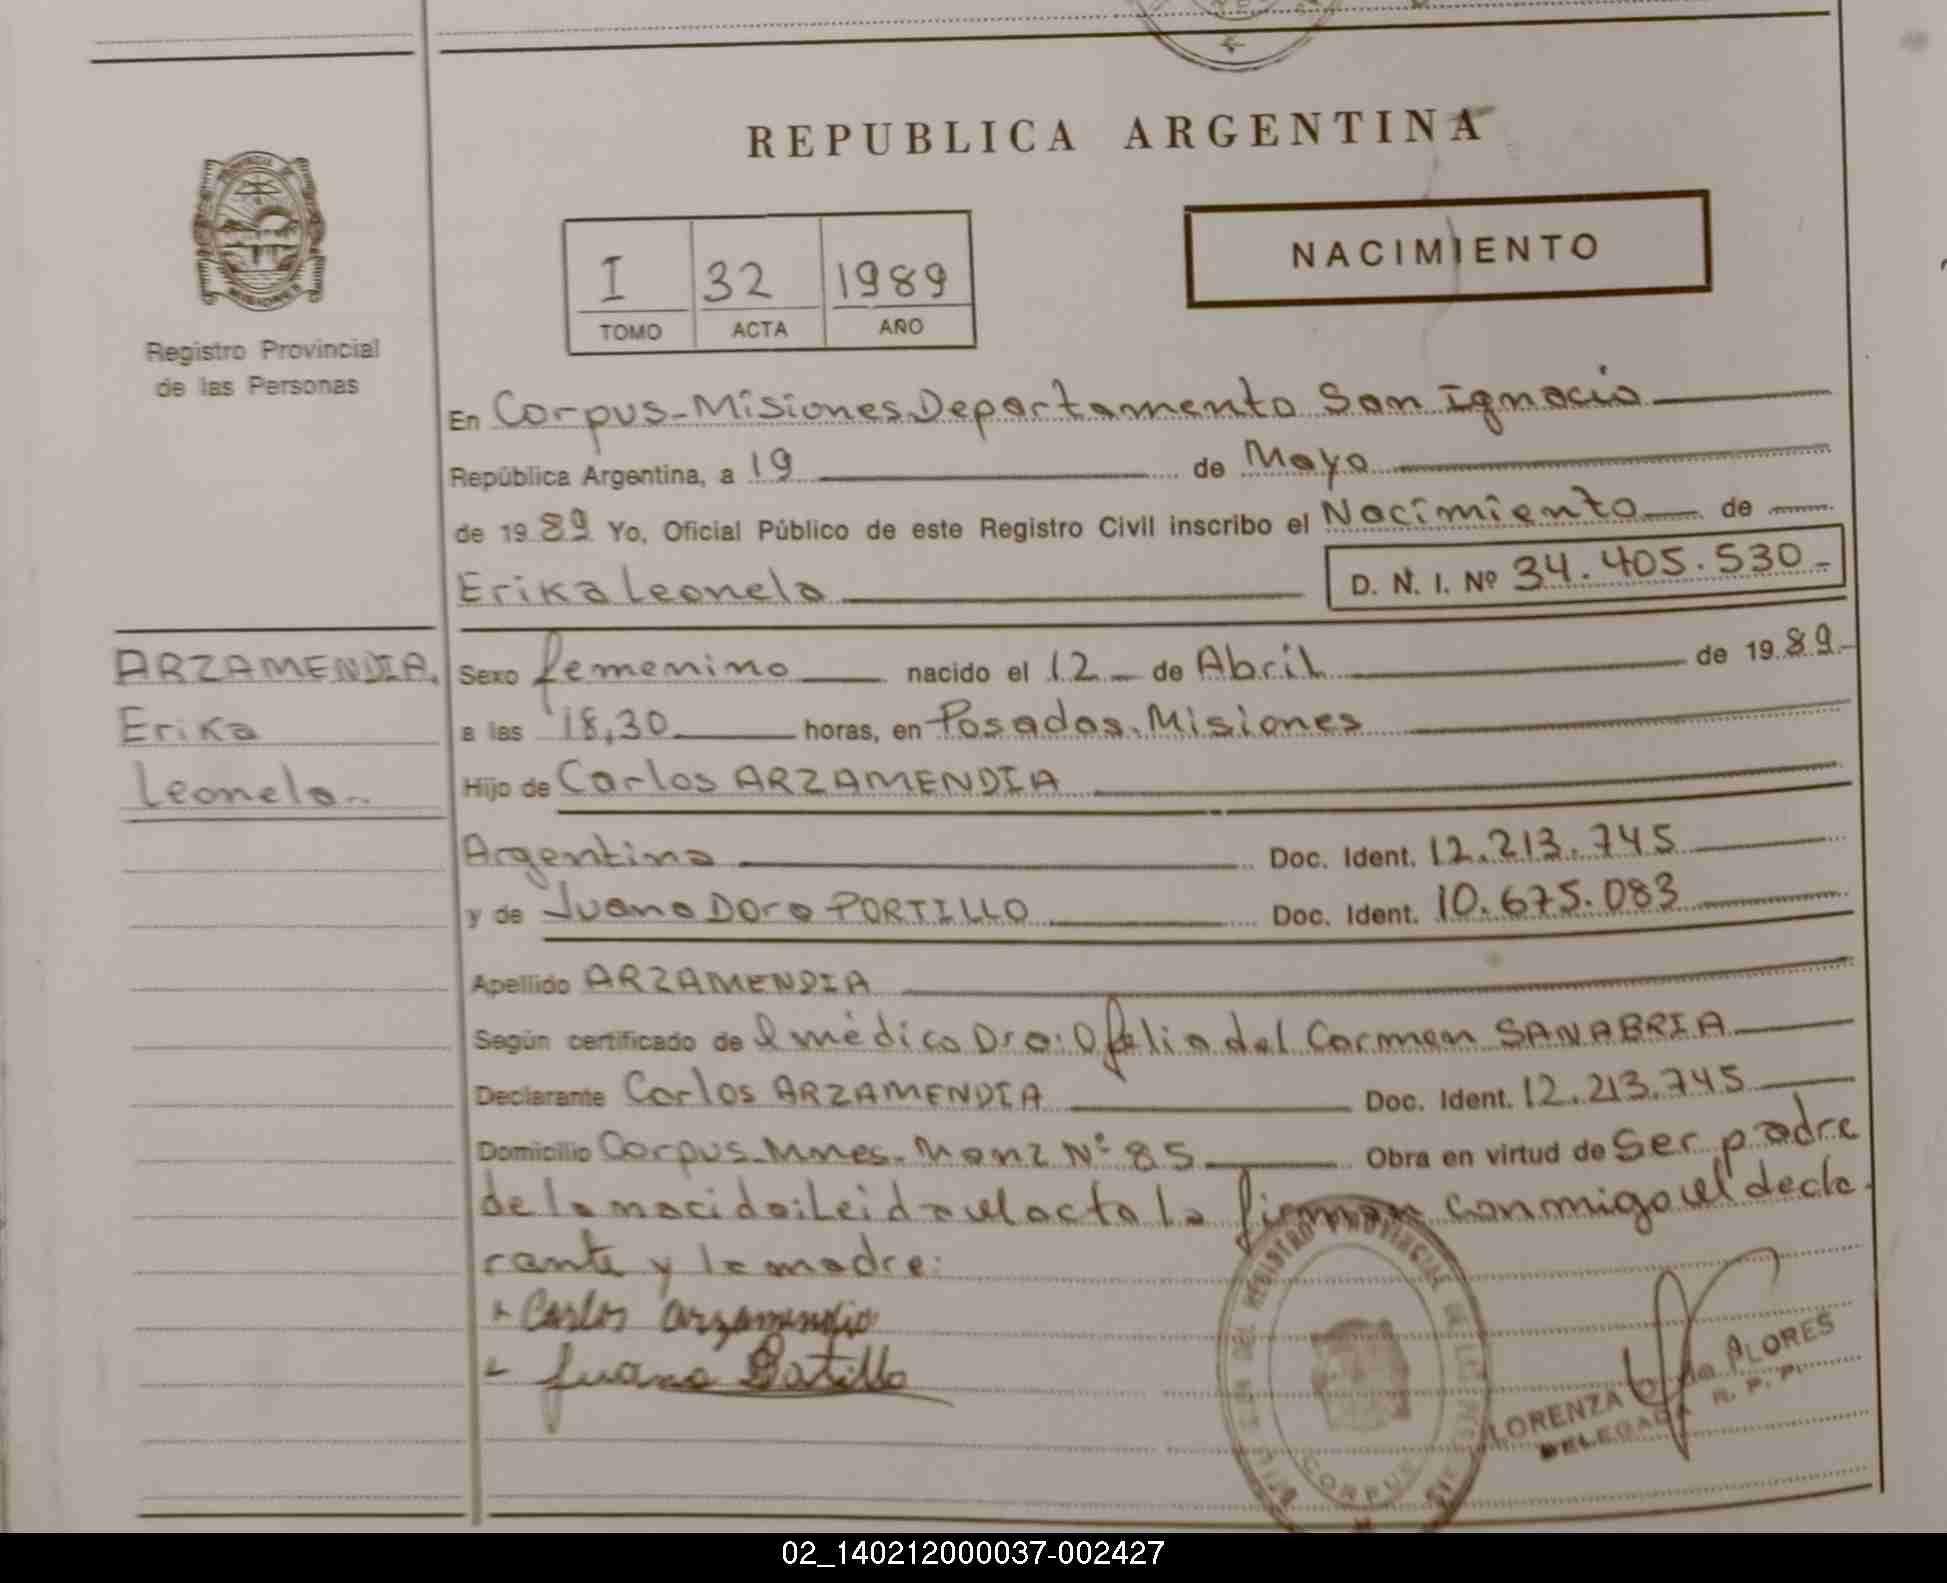 REPUBLICA ARGENTINA
I 32 1989
TOMO ACTA AÑO
NACIMIENTO
Registro Provincial
de las Personas
En Corpus-Misiones Departamento San Ignacio
República Argentina, a 19 de Mayo
de 1989 Yo, Oficial Público de este Registro Civil inscribo el Nacimiento de
Erika Leonela D. N. I. Nº 34.405.530-
ARZAMENDIA,
Erika
Leonela-
Sexo femenino nacido el 12 de Abril de 1989-
a las 18,30 horas, en Posadas, Misiones
Hijo de Carlos ARZAMENDIA
Argentina Doc. Ident. 12.213.745
y de Juana Dora PORTILLO Doc. Ident. 10.675.083
Apellido ARZAMENDIA
Según certificado de el médico Dra: Ofelia del Carmen SANABRIA
Declarante Carlos ARZAMENDIA Doc. Ident. 12.213.745
Domicilio Corpus-Mnes-Manz Nº 85 Obra en virtud de Ser padre
de la nacida: Leida el acta la firman conmigo el decla
rante y la madre:
Carlos Arzamendia
Juana Portillo
REGISTRO PROVINCIAL DE LAS
CORPUS
LORENZA de FLORES
DELEGADA R. P. P.
02_140212000037-002427